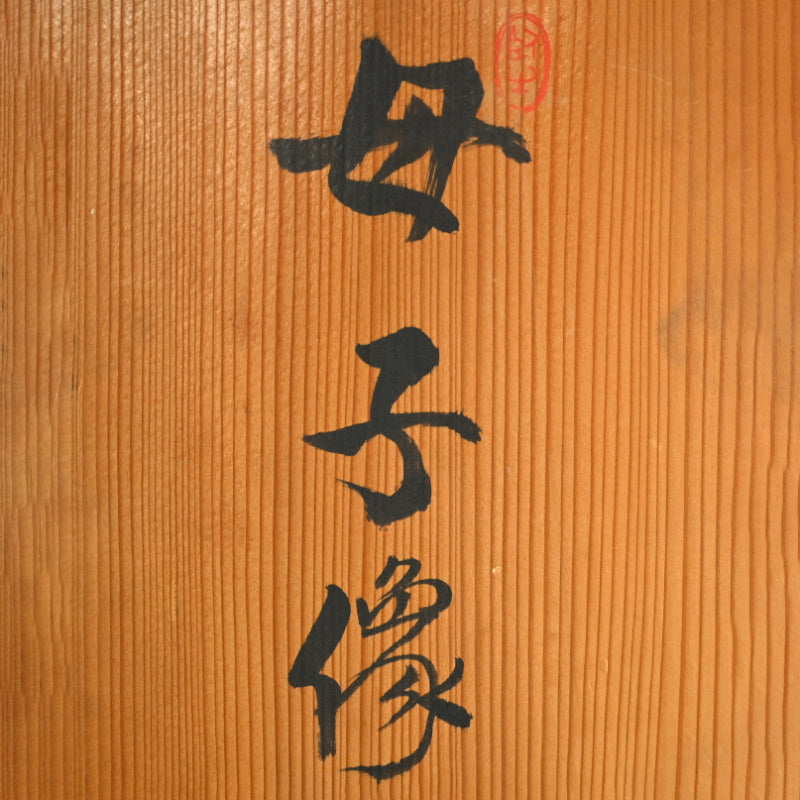 母子像